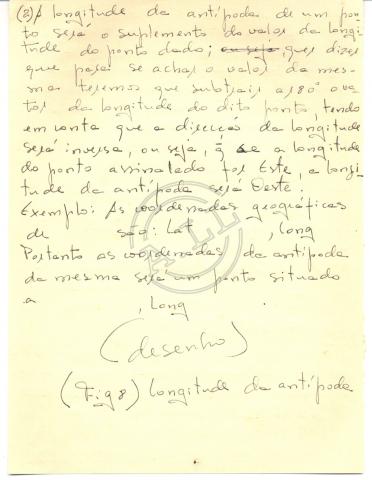 (2ª) A longitude da antípoda de um pon-
to será o suplemento do valor da longi-
tude do ponto dado; ou seja, quer dizer
que para se achar o valor da mes-
ma teremos que subtrair a 180º o va-
lor da longitude do dito ponto, tendo
em conta que a direcção da longitude
será inversa, ou seja, q̃ se a longitude
do ponto assinalado for Este, a longi-
tude da antípoda será Oeste.
Exemplo: As coordenadas geográficas
de são: Lat , Long
Portanto as coordenadas da antípoda
da mesma será um ponto situado
a , Long
(desenho)
(Fig 8) Longitude da antípoda